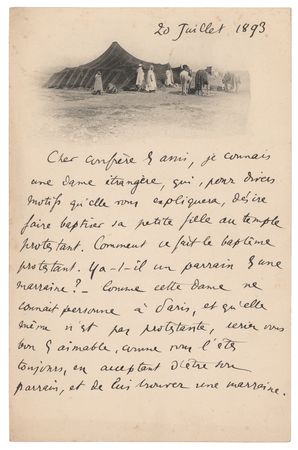 20 Juillet 1893
Cher confrère & ami, je connais
une dame étrangère, qui, pour divers
motifs qu'elle vous expliquera, désire
faire baptiser sa petite fille au temple
protestant. Comment se fait le baptême
protestant. Y a-t-il un parrain & une
marraine ? _ Comme cette dame ne
connait personne à Paris, et qu'elle
même n'est pas protestante, seriez vous
bon & aimable, comme vous l'êtes
toujours, en acceptant d'être son
parrain, et de lui trouver une marraine.